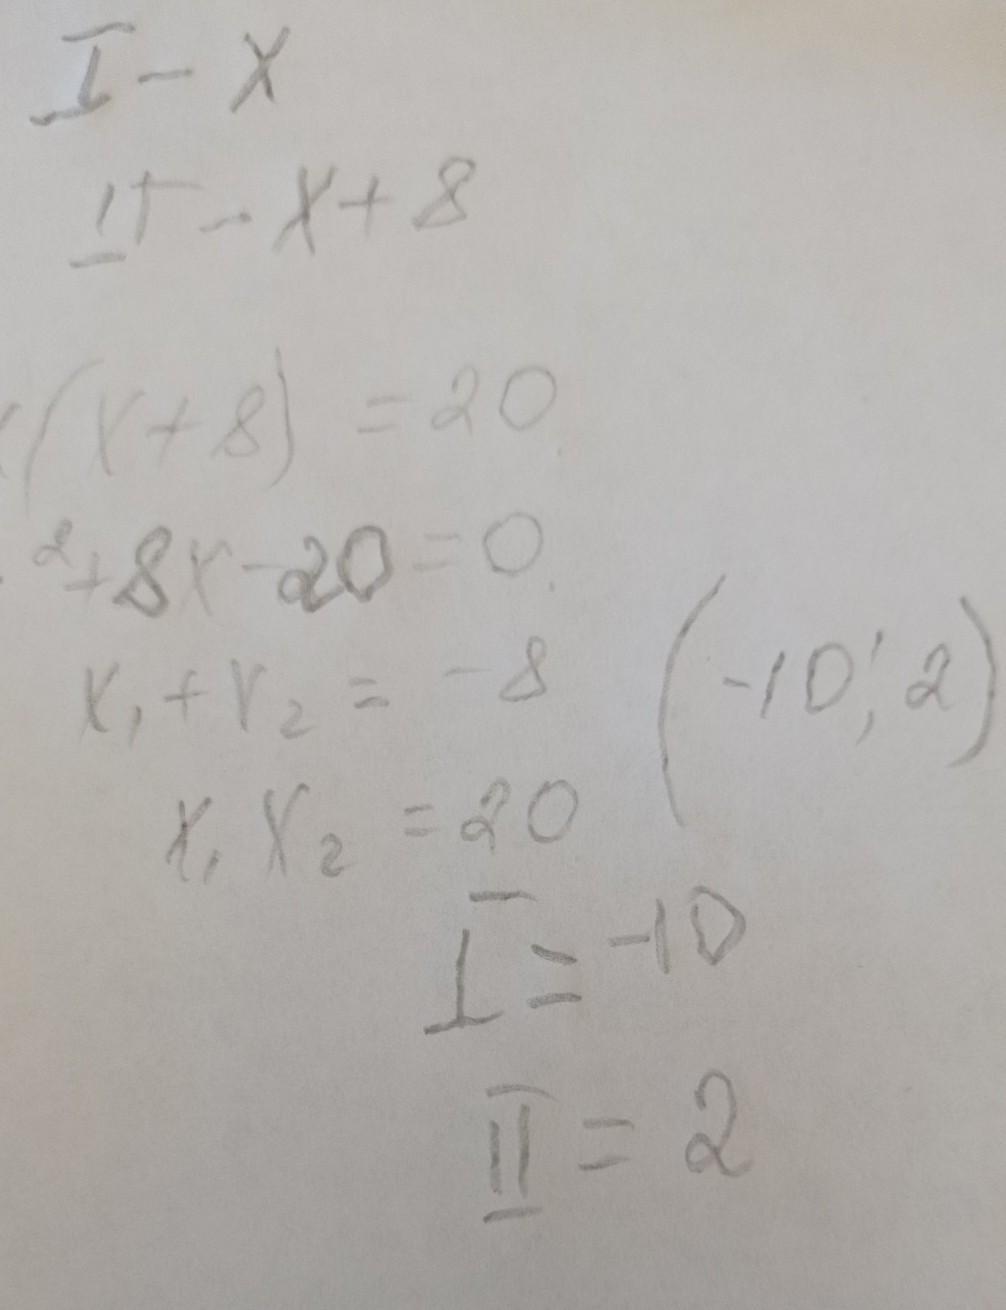 I - x
II - x + 8
x(x + 8) = 20
² + 8x - 20 = 0
x₁ + x₂ = -8 (-10; 2)
x₁ x₂ = 20
I = -10
II = 2